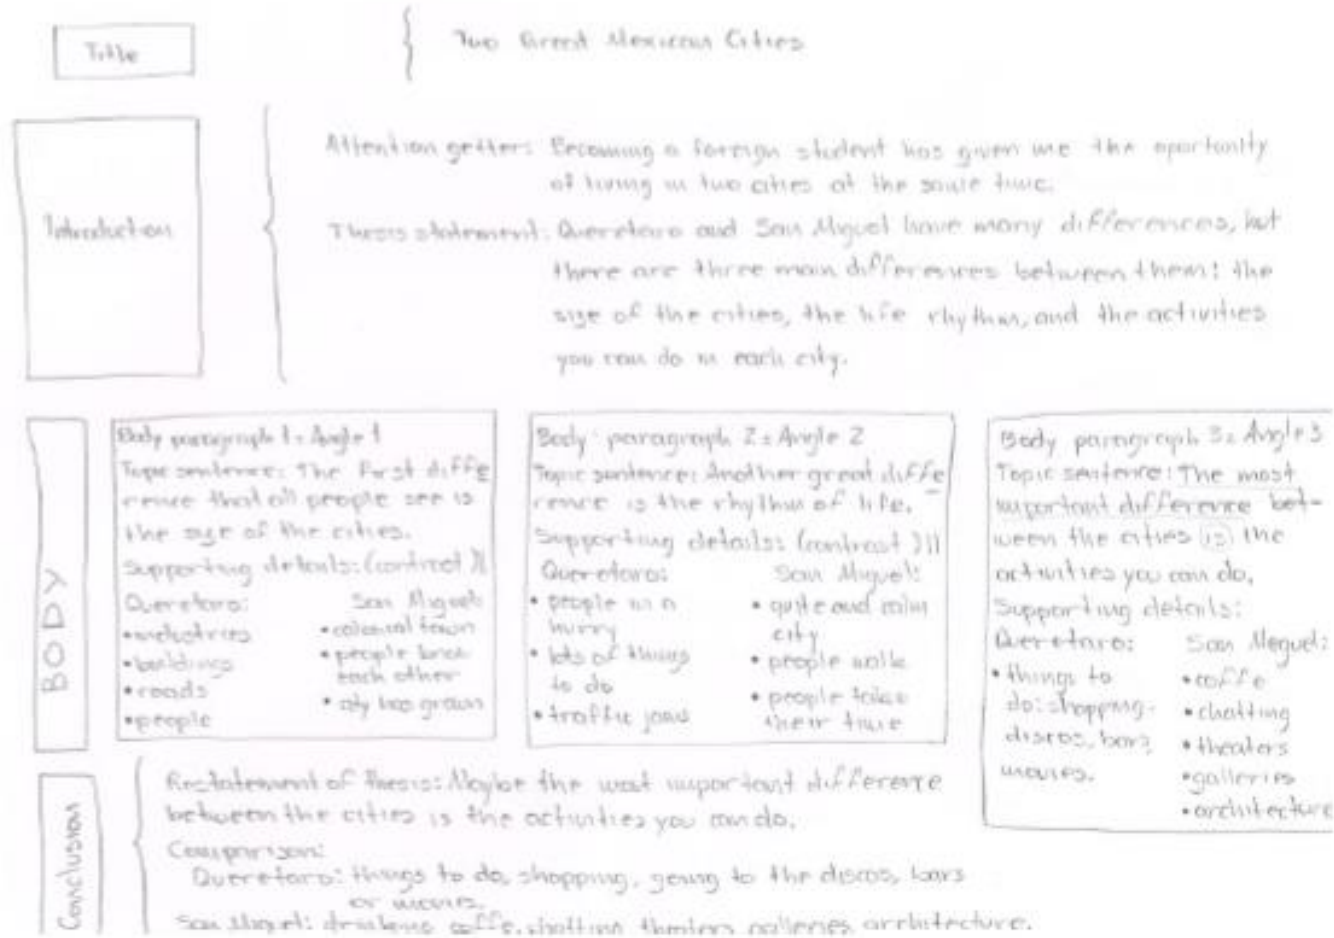 Title
Two Great Mexican Cities
Introduction
Attention getter: Becoming a foreign student has given me the oportunity
of living in two cities at the same time.
Thesis statement: Queretaro and San Miguel have many differences, but
there are three main differences between them: the
size of the cities, the life rhythm, and the activities
you can do in each city.
BODY
Body paragraph 1: Angle 1
Topic sentence: The first diffe
rence that all people see is
the size of the cities.
Supporting details: (contrast)
Queretaro:
• industries
• buildings
• roads
• people
San Miguel:
• colonial town
• people know
each other
• city has grown
Body paragraph 2: Angle 2
Topic sentence: Another great diffe
rence is the rhythm of life.
Supporting details: (contrast)
Queretaro:
• people in a
hurry
• lots of things
to do
• traffic jams
San Miguel:
• quite and calm
city
• people walk
• people take
their time
Body paragraph 3: Angle 3
Topic sentence: The most
important difference bet-
ween the cities is the
activities you can do.
Supporting details:
Queretaro:
• things to
do: shopping,
discos, bars,
movies.
San Miguel:
• coffe
• chatting
• theaters
• galleries
• architecture
Conclusion
Restatement of thesis: Maybe the most important difference
between the cities is the activities you can do.
Comparison:
Queretaro: things to do, shopping, going to the discos, bars
or movies.
San Miguel: drinking coffe, chatting theaters galleries architecture.